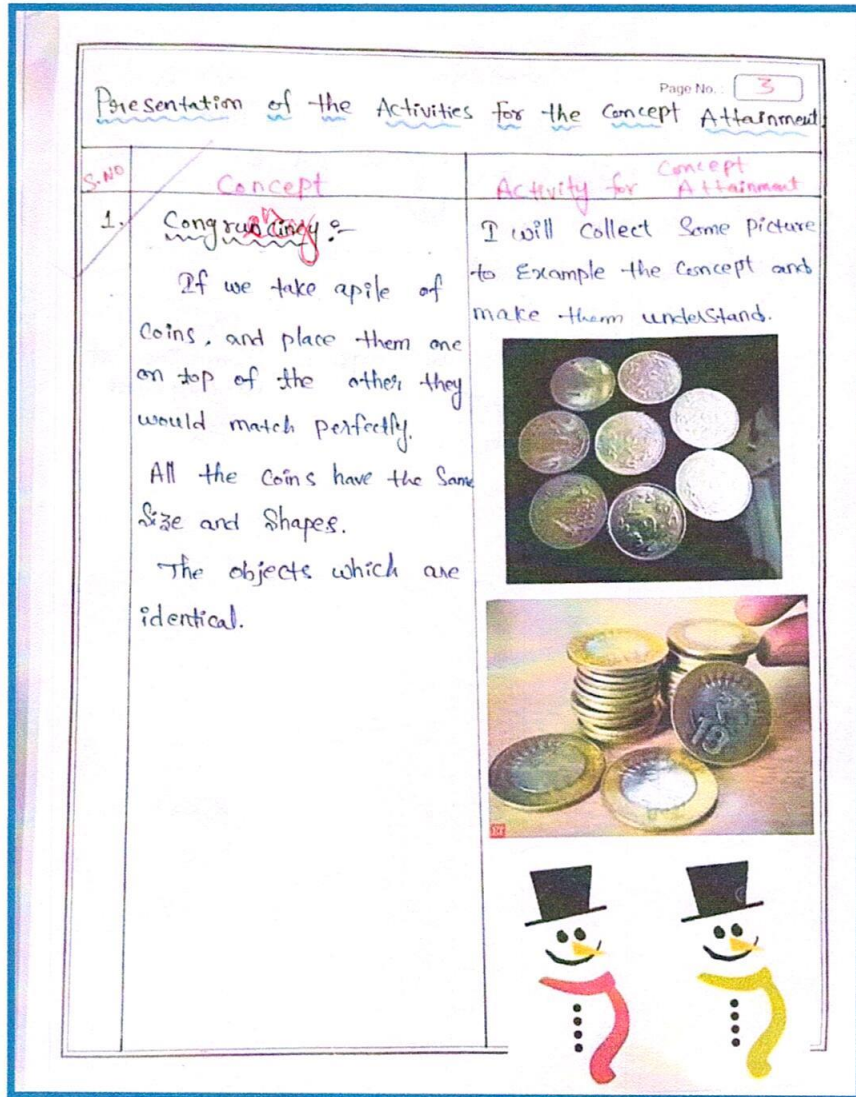 Page No. : 3
Presentation of the Activities for the Concept Attainment.
S.No
Concept
Activity for Concept Attainment
1.
If we take apile of
Coins, and place them one
on top of the other they
would match perfectly.
All the Coins have the Same
Size and Shapes.
The objects which are
identical.
I will collect Some Picture
to Example the Concept and
make them understand.
10
ET